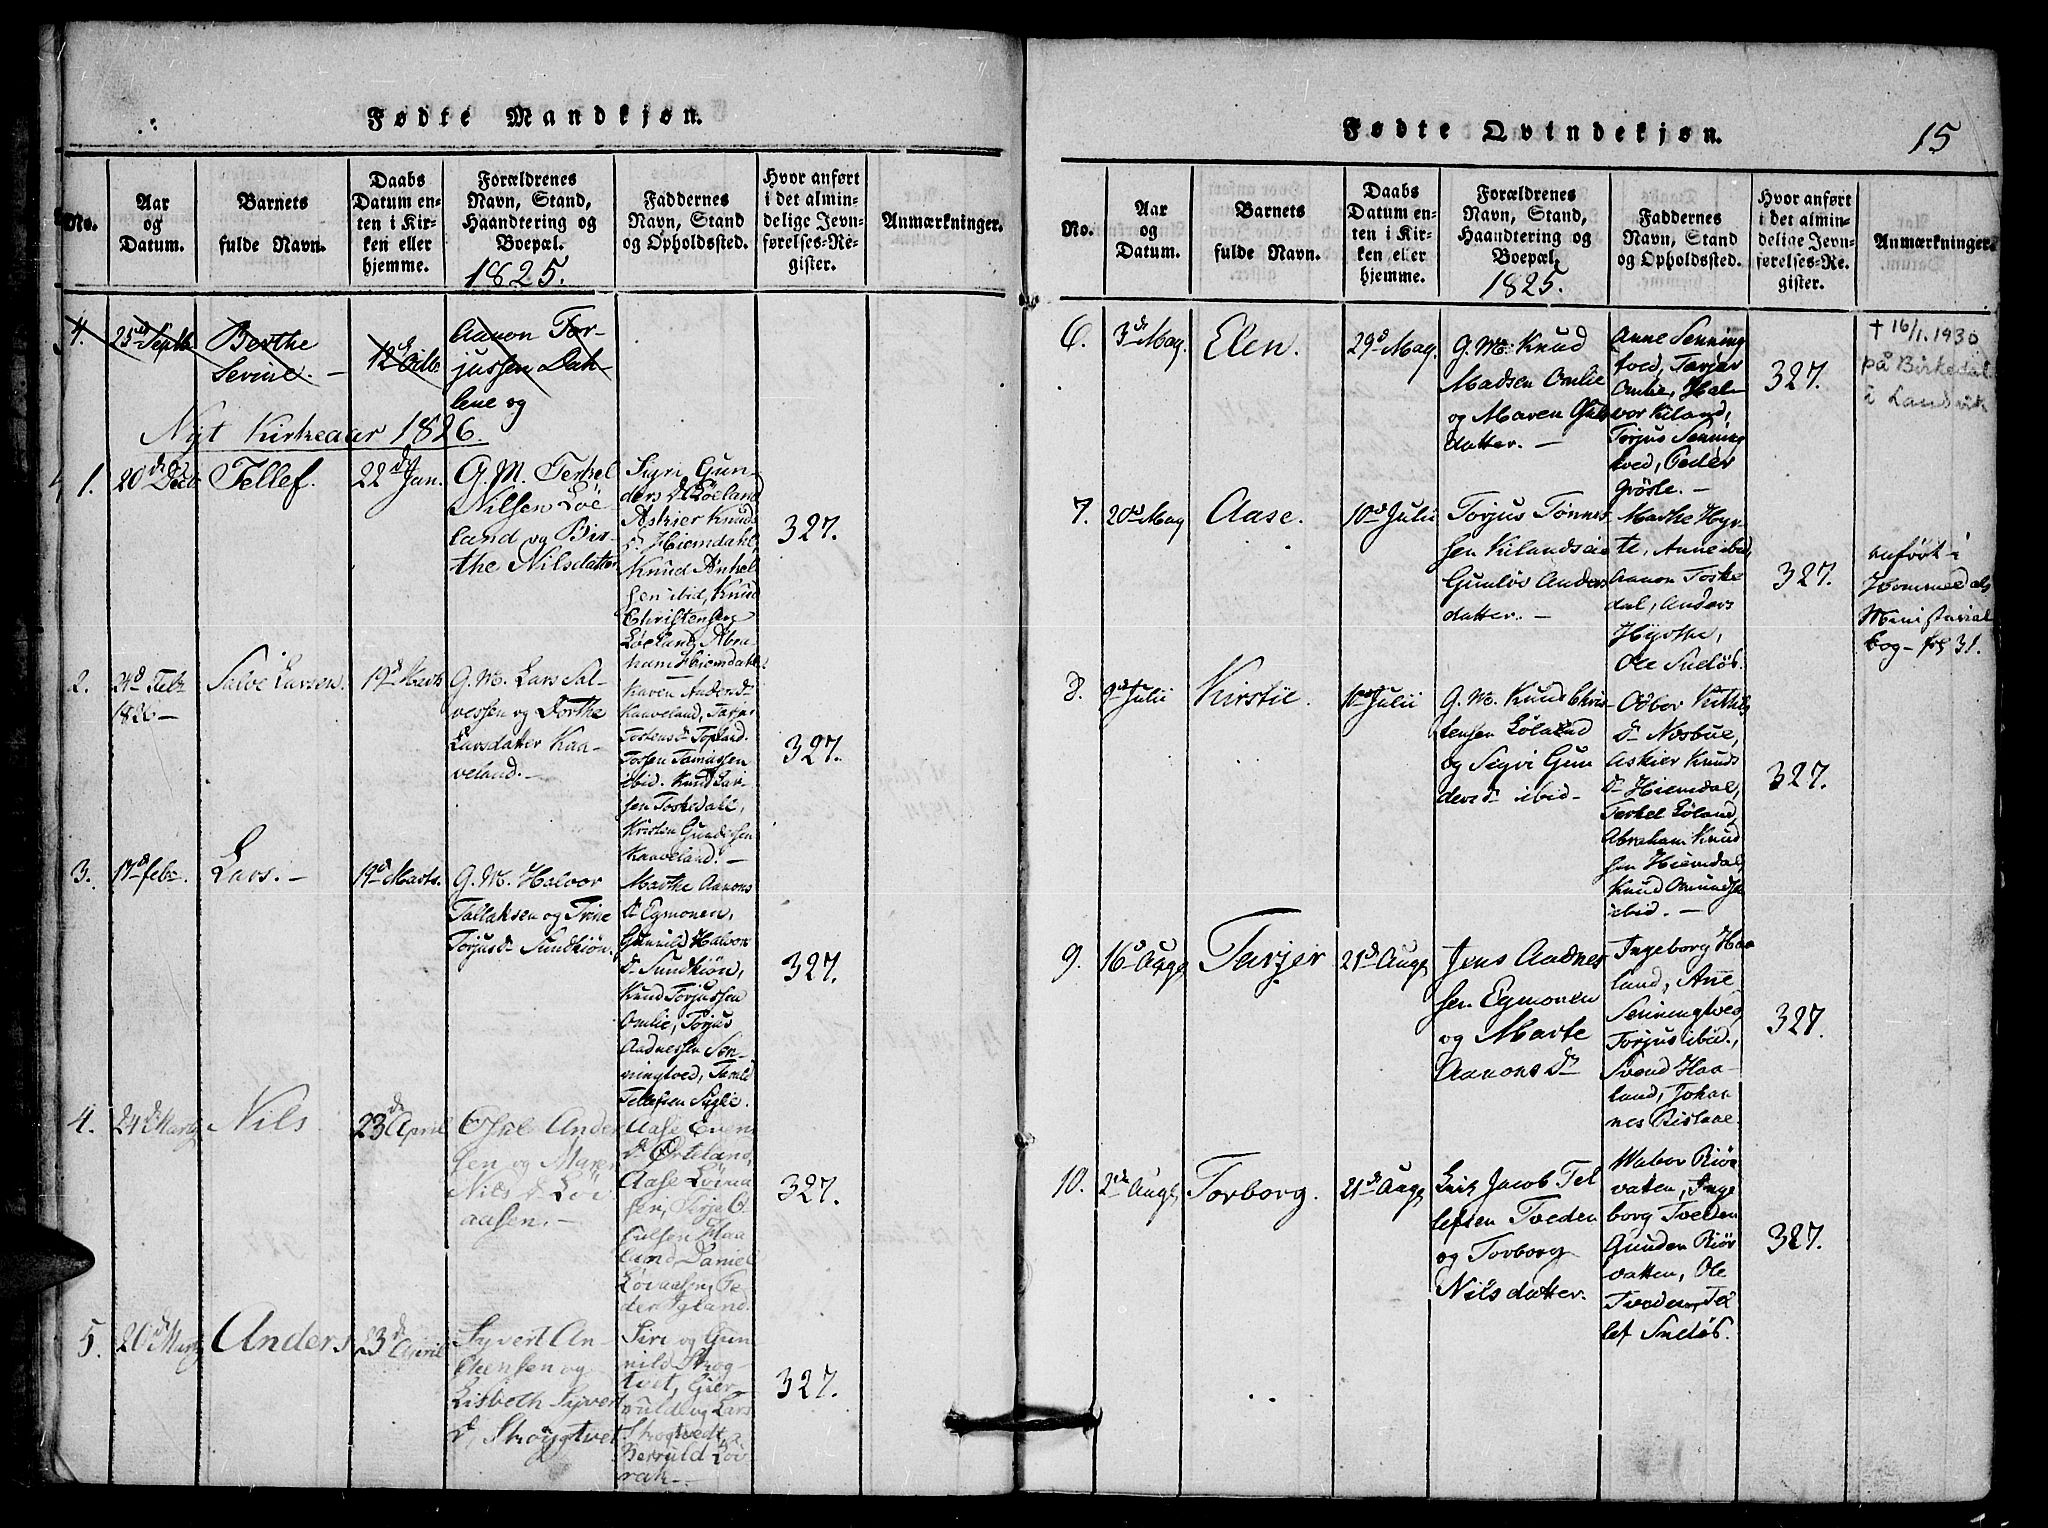 Fødte Mandkjøn.
No.
Aar
og
Datum.
Barnets
fulde Navn.
Daabs
Datum en-
ten i Kir-
ken eller
hjemme.
Forældrenes
Navn, Stand,
Haandtering og
Boepæl.
1825.
Faddernes
Navn, Stand
og Opholdssted.
Hvor anført
i det almin-
delige Jevn-
førelses-Re-
gister.
Anmærkninger.
4.
25d Septb
Berthe
Sevine. -
12d Octb
Aanon Tor-
jussen Dah-
lene og
Nyt Kirkeaar 1826.
1.
20de Decb
Tellef.
22de Jan.
G. M. Terkel
Nilsen Löe-
land og Bir-
the Nilsdatter
Siri Gun-
ders d. Löeland
Askier Knuds
d. Hiemdahl,
Knud Ankel
sen ibid, Knud
Christensen
Löeland, Abra
ham Hiemdahl
327.
2.
24d Febr
1826 -
Salve Larsen.
19d Marts
G. M. Lars Sal-
vessen og Dorthe
Larsdatter Kaa-
veland. -
Karen Andersd.
Kaaveland, Tarjer
Tostensd. Topland.
Tossen Tamassen
ibid. Knud Lar-
sen Toskedahl,
Kristen Gundersen
Kaaveland. -
327.
3.
17d febr.
Lars. -
19d Marts.
G. M. Halvor
Tallaksen og Trine
Torjusd. Sundkiön.
Marthe Aanons
d. Egmonen,
Gunnild Halvor
d. Sundkiön,
Knud Torjussen
Omlie, Torjus
Aadnessen Sen-
ningtved,
Tellefsen
327.
4.
24d Marty
Nils
23de April
Ander
sen og Maren
Nils d. Löv
aasen. -
Aase Even
d. Örteland,
Aase Lövaa
sen, Terje
ulfsen Haa
land, Daniel
Lövaasen, Pe
der Igland.
327.
5.
20de Marty
Anders
23de April
Syvert An-
dersen og
Lisbeth Syvert
d, Skougtvet
Siri og Gun
nild Skog-
tvet,
og Lars
Skogtvedt,
Berruld Löv
rak -
327.
Fødte Qvindekjøn.
15
No.
Aar
og
Datum.
Barnets
fulde Navn.
Daabs
Datum en-
ten i Kir-
ken eller
hjemme.
Forældrenes
Navn, Stand,
Haandtering og
Boepæl.
1825.
Faddernes
Navn, Stand
og Opholdssted.
Hvor anført
i det almin-
delige Jevn-
førelses-Re-
gister.
Anmærkninger.
6.
3de May.
Elen.
29d May.
G. M. Knud
Madsen Omlie
og Maren
datter. -
Anne Senning
tved, Tarjer
Omlie, Hal-
vor Kiland,
Torjus Senning
tved, Peder
Gröste. -
327.
+ 16/1. 1930
på Birkedal
i Landvik
7.
20d May
Aase.
10d Julii
Torjus Tönnes
sen Kilandseie
Gunlöv Anders
datter. -
Marthe Hyr-
te, Anne ibid,
Aanon Toske
dal, Anders
Hyrthe,
Ole Sudös.
327.
anfört i
Hommedals
Ministerial
bog - fol 31.
8.
9d Julii
Kirstie.
10d Julii
G. M. Knud Chris-
tensen Löland
og Segvi Gun
dersd. ibid -
Odbor Kittils
d. Nosbue,
Askier Knuds
d. Hiemdal,
Terkel Löland,
Abraham Knud
sen Hiemdal,
Knud Omunds
ibid. -
327.
9.
16d Augs
Tarjer
21d Augs
Jens Aadnes
sen Egmonen
og Marte
Aanons d.
Ingeborg Haa
land, Anne
Senningtved
Torjus ibid.,
Svend Haa-
land, Johan
nes Ristaae.
327.
10.
2de Augs
Torborg.
21d Augs
Erik Jacob Tel
lefsen Tveden
og Torborg
Nilsdatter.
Wabor Riör
vatten, Inge
borg Tveden
Gunden Riör
vatten, Ole
Tveden, Tel
lef Sudös.
327.